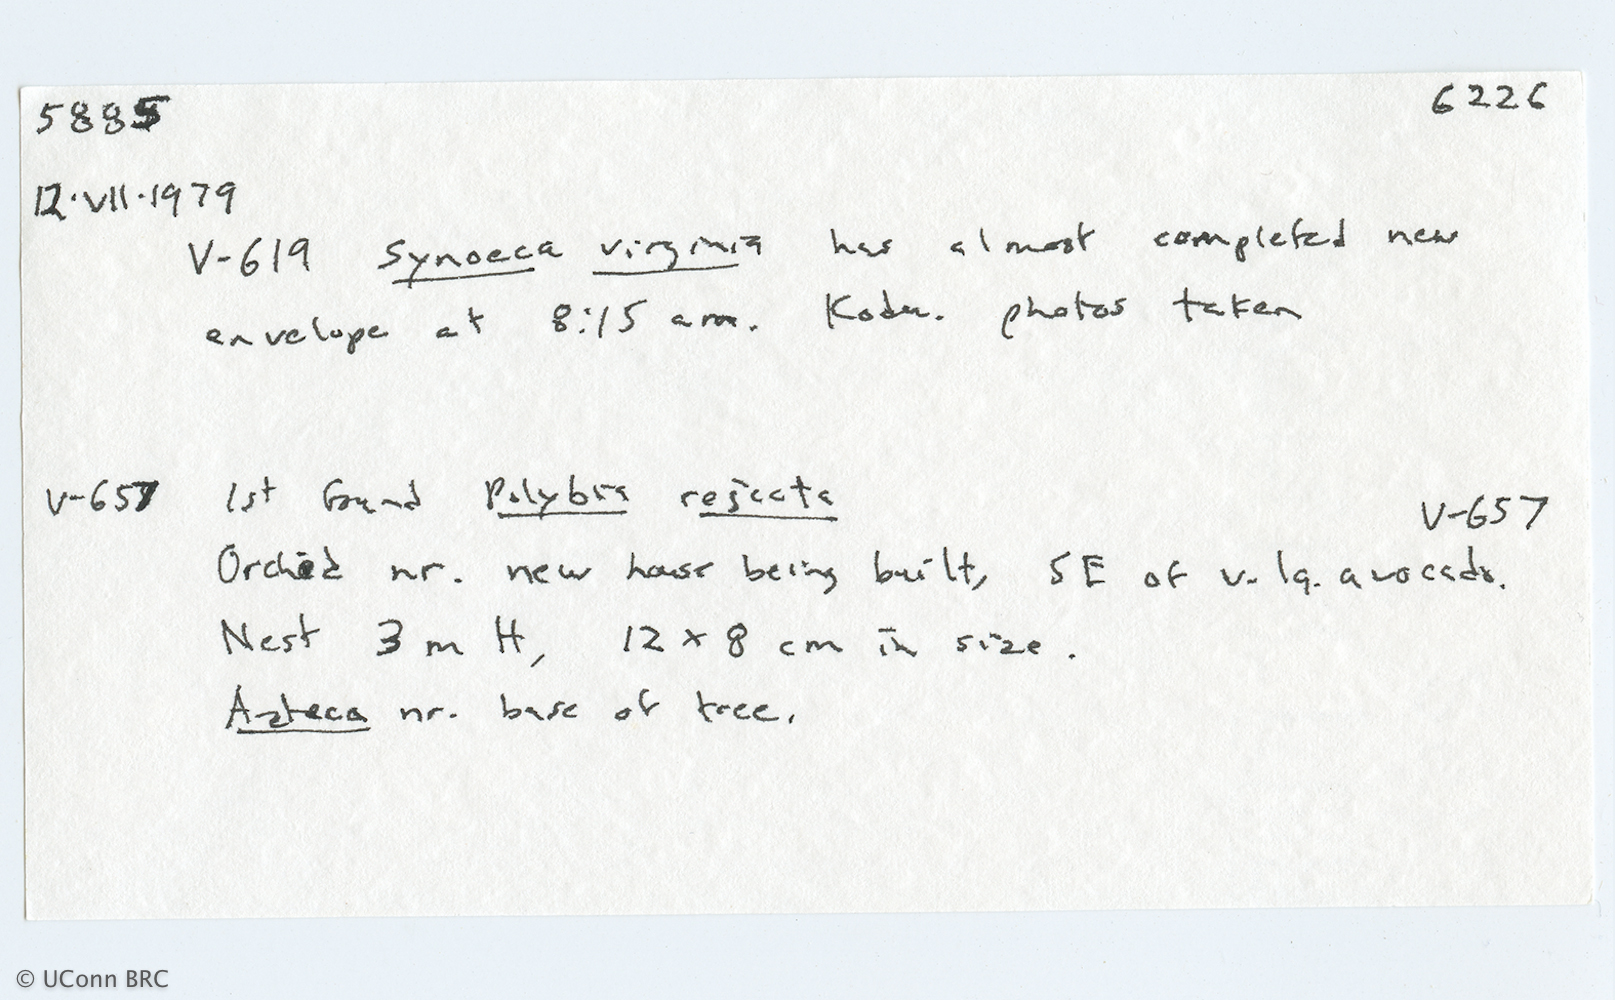 5885 6226
12.VII.1979
V-619 Synoeca virginia has almost completed new
envelope at 8:15 am. Koda. photos taken
V-657 1st found Polybia rejecta V-657
Orchid nr. new house being built, SE of v. lg. avocado.
Nest 3 m H, 12 x 8 cm in size.
Azteca nr. base of tree.
© UConn BRC